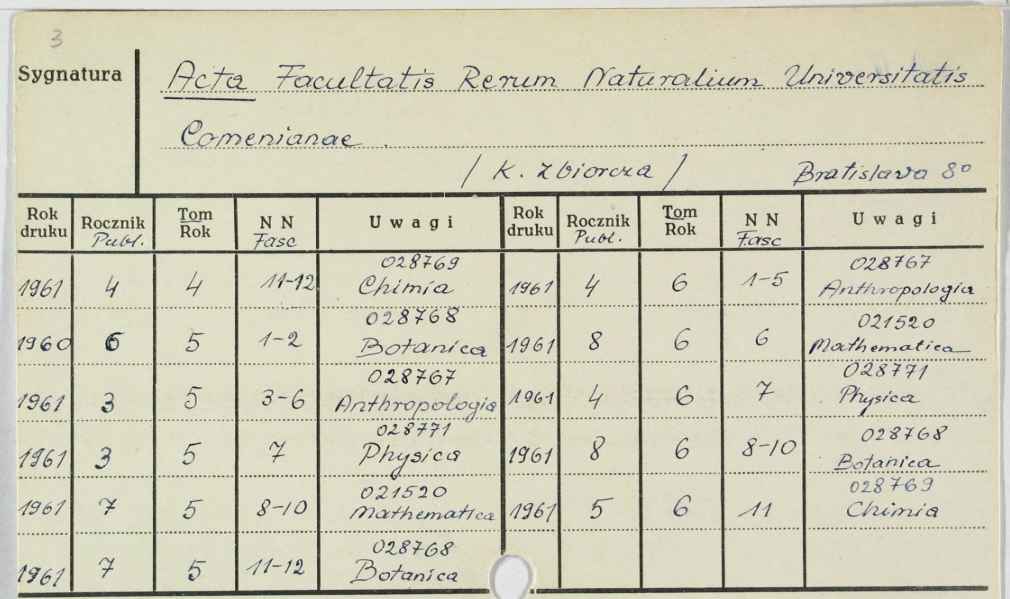 3
Sygnatura
Acta Facultatis Rerum Naturalium Universitatis
Comenianae.
/ K. Zbiorcza / Bratislava 8°
Rok druku Rocznik Publ. Tom Rok NN Fasc Uwagi Rok druku Rocznik Publ. Tom Rok NN Fasc Uwagi
1961 4 4 11-12 028769 Chimia 1961 4 6 1-5 028767 Anthropologia
1960 6 5 1-2 028768 Botanica 1961 8 6 6 021520 Mathematica
1961 3 5 3-6 028767 Anthropologia 1961 4 6 7 028771 Physica
1961 3 5 7 028771 Physica 1961 8 6 8-10 028768 Botanica
1961 7 5 8-10 021520 Mathematica 1961 5 6 11 028769 Chimia
1961 7 5 11-12 028768 Botanica